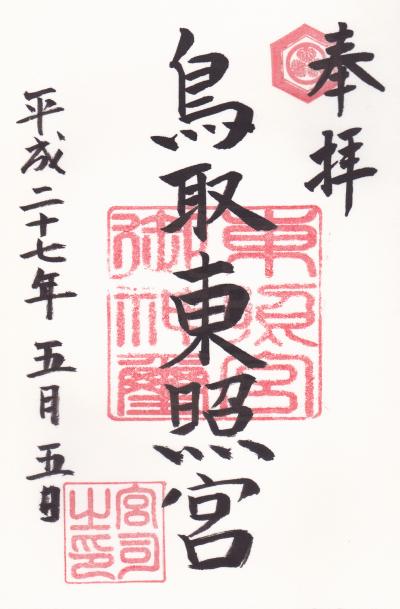 奉拝
鳥取東照宮
東照宮
御神璽
平成二十七年五月五日
宮司
之印